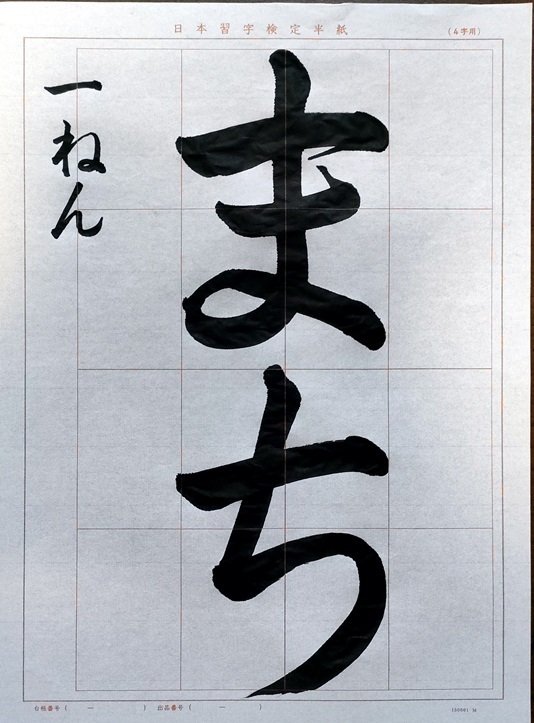 日本習字検定半紙
(4字用)
まち
一ねん
台紙番号(　ー　)
出品番号(　ー　)